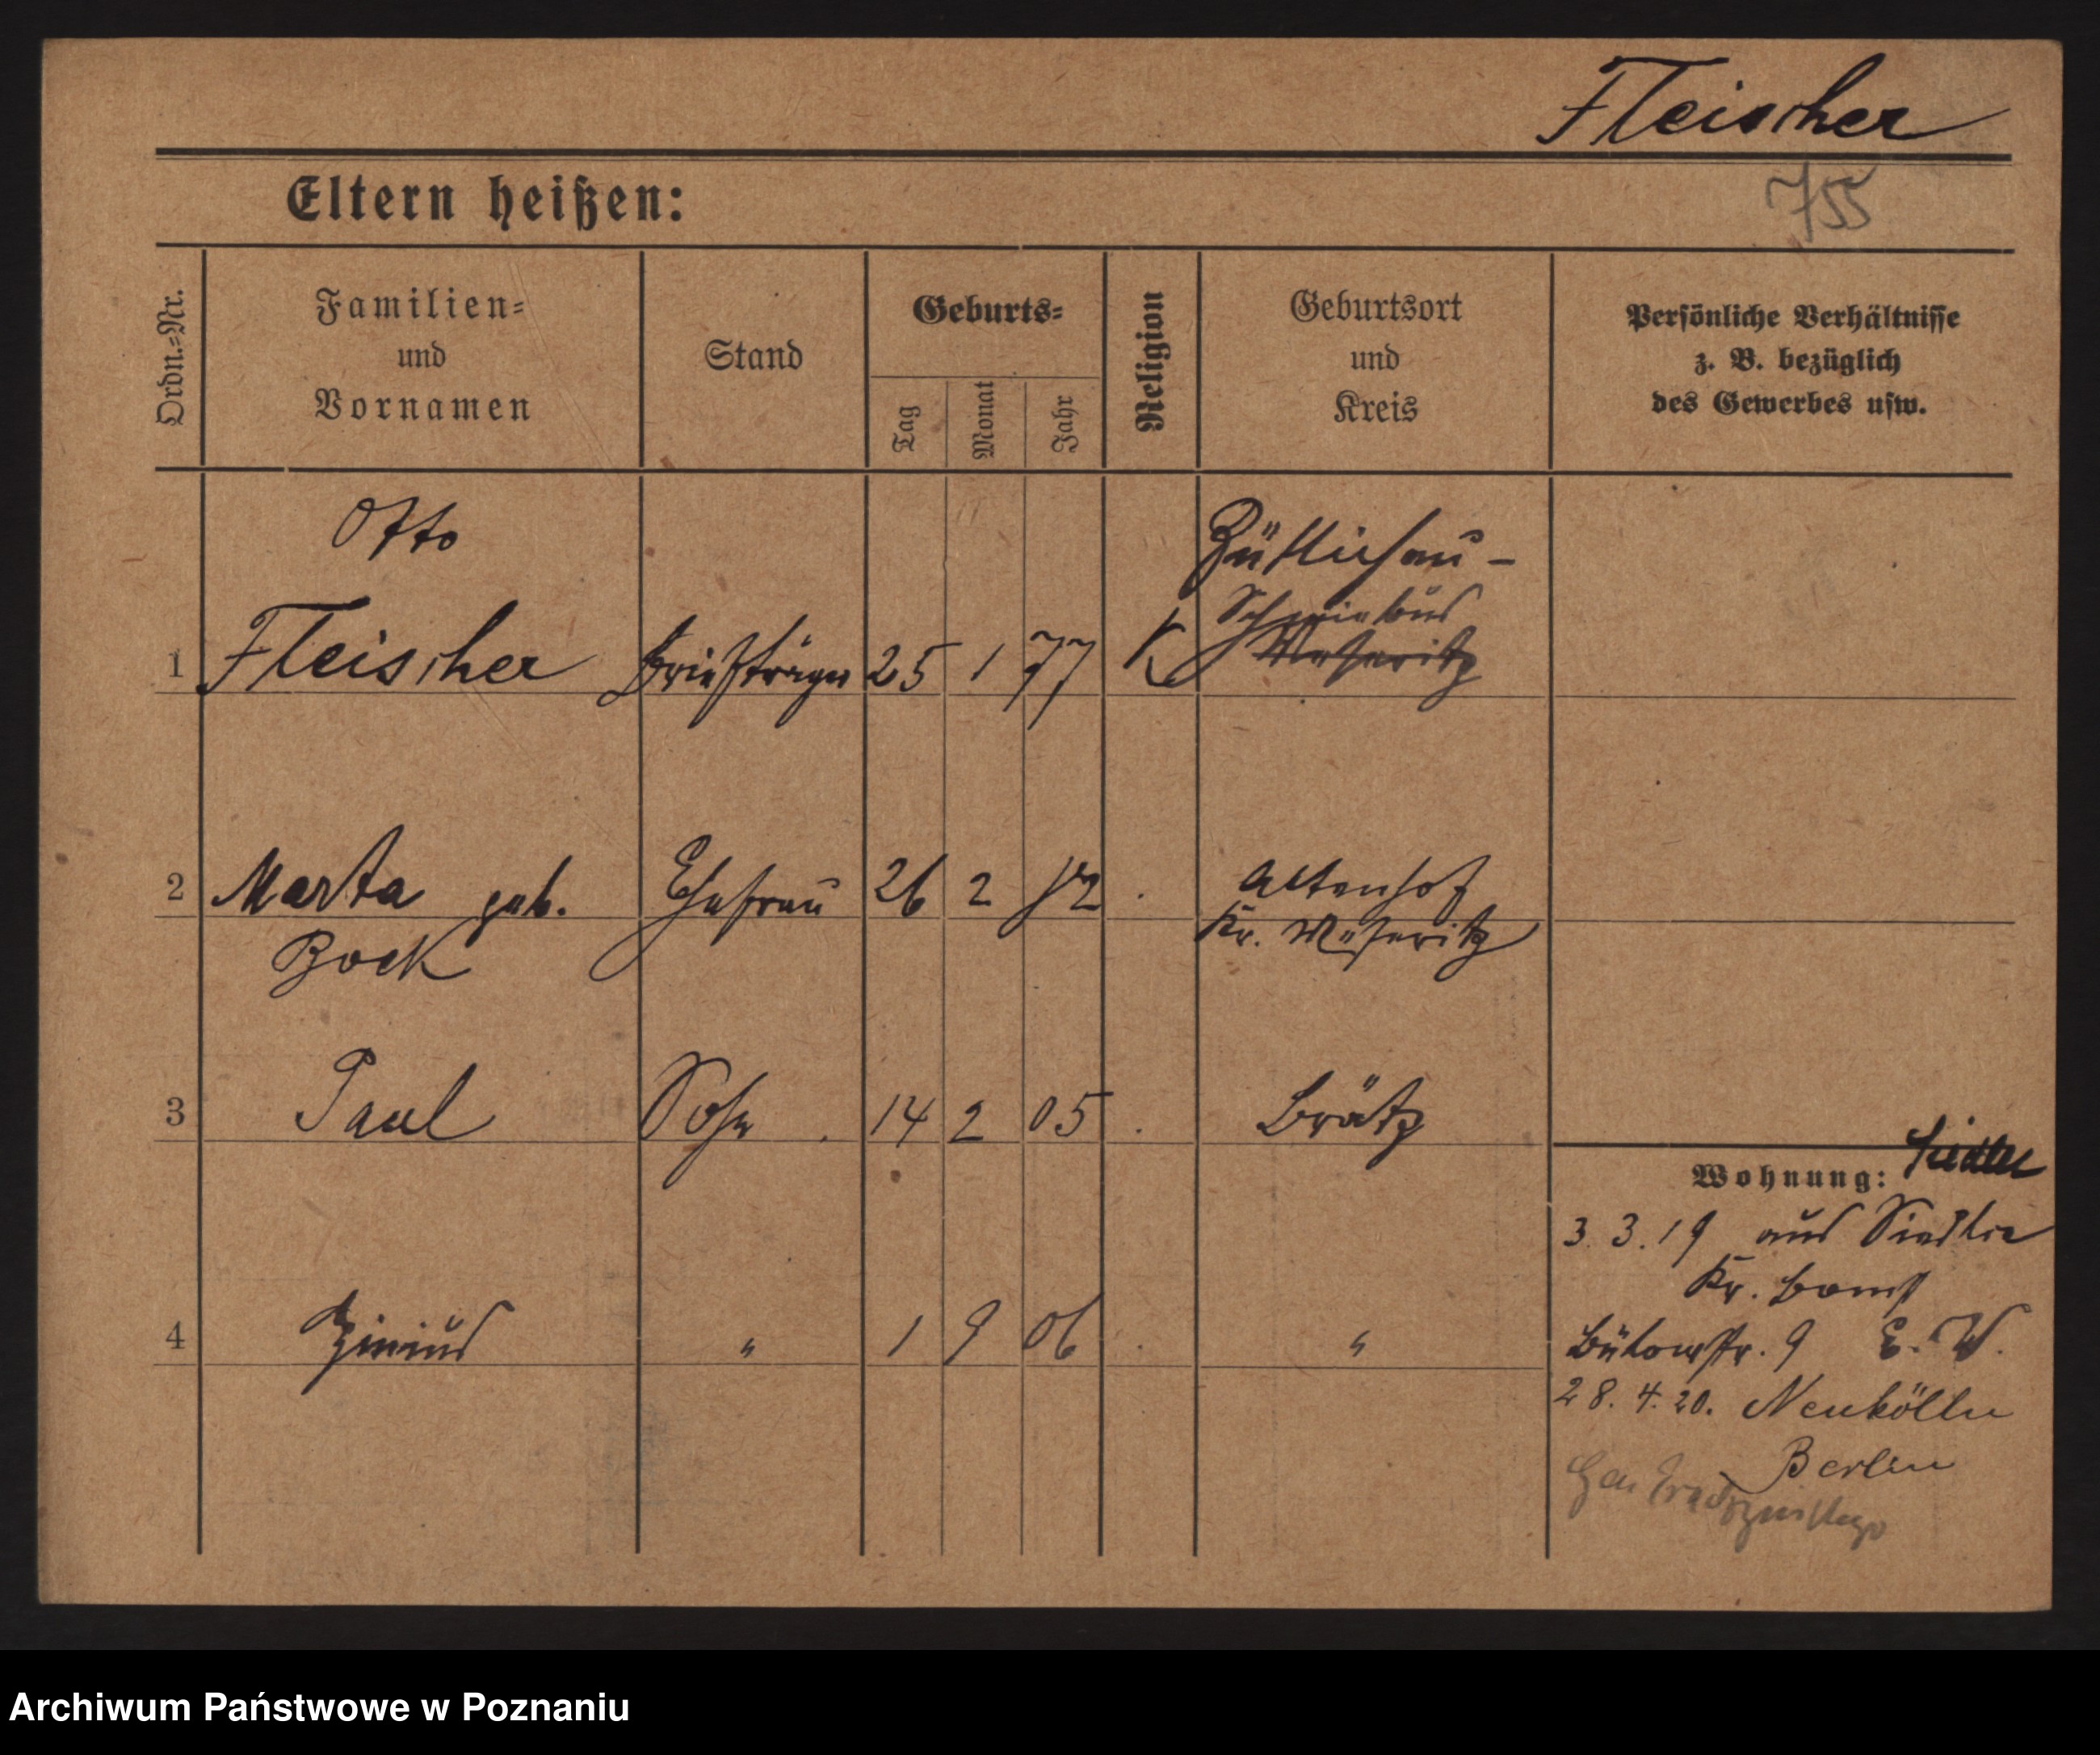 Fleischer
Eltern heißen:
755
Ordn.-Nr.
Familien-
und
Vornamen
Stand
Geburts-
Tag
Monat
Jahr
Religion
Geburtsort
und
Kreis
Persönliche Verhältnisse
z. B. bezüglich
des Gewerbes usw.
Otto
Züllichau -
Schwiebus
1 Fleischer Briefträger 25 1 77 K Meseritz
2 Marta geb. Ehefrau 26 2 82 Altenhof
Bock Kr. Meseritz
3 Paul Sohn 14 2 05 Brätz
4 " 1 9 06 "
Wohnung:
3.3.19 aus
Kr. Bomst
Bülowstr. 9 E. W.
28.4.20. Neukölln
Berlin
Archiwum Państwowe w Poznaniu